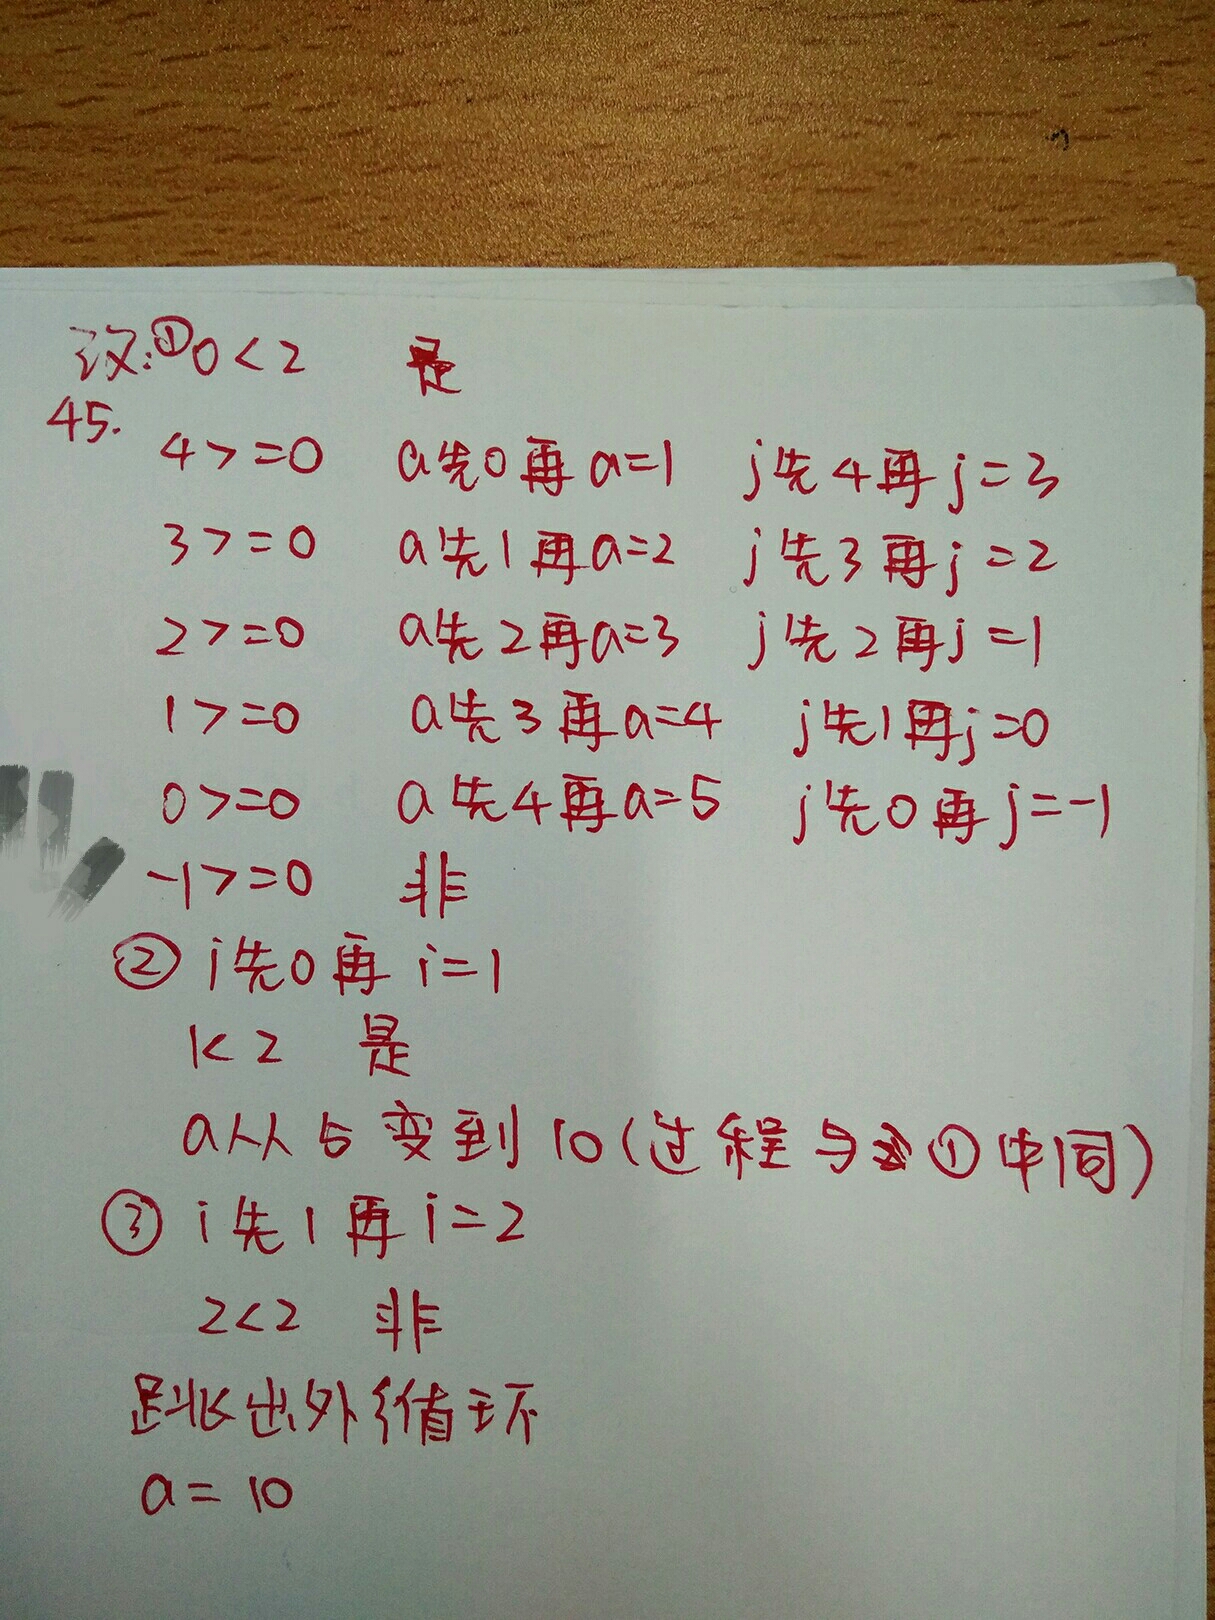 汉:①0<2 是
45.
4>=0 a先0再a=1 j先4再j=3
3>=0 a先1再a=2 j先3再j=2
2>=0 a先2再a=3 j先2再j=1
1>=0 a先3再a=4 j先1再j=0
0>=0 a先4再a=5 j先0再j=-1
-1>=0 非
② i先0再i=1
1<2 是
a从5变到10(过程与①中间)
③ i先1再i=2
2<2 非
跳出外循环
a=10